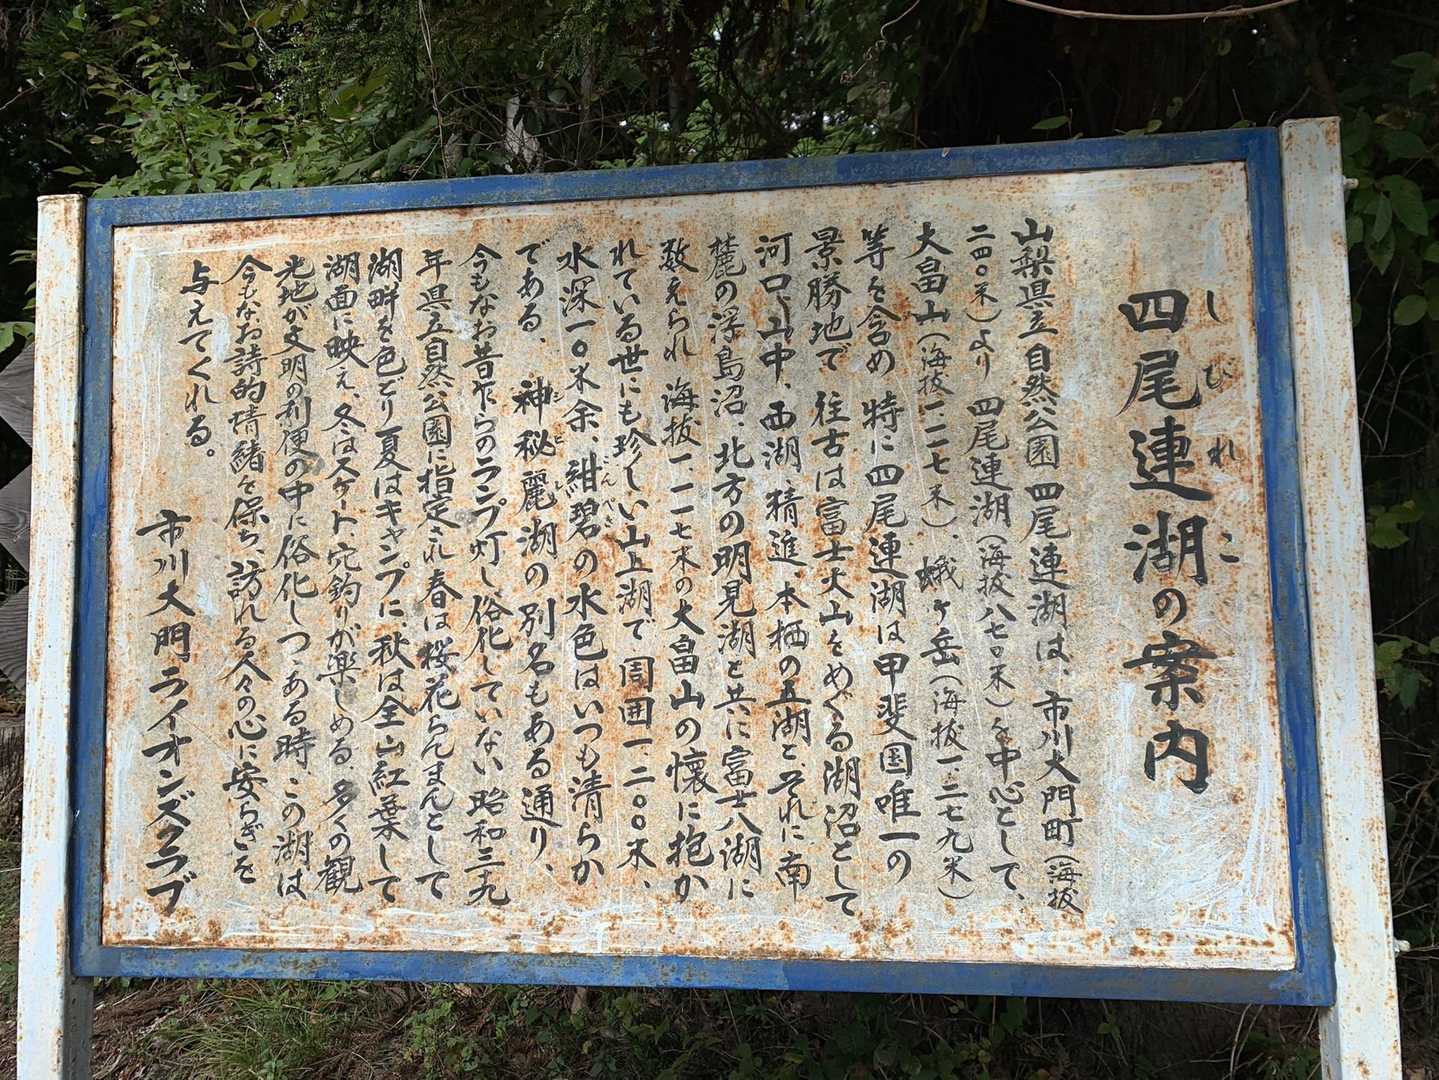 しびれこ
四尾連湖の案内
山梨県立自然公園四尾連湖は、市川大門町(海抜
二四〇米)より四尾連湖(海抜八七〇米)を中心として、
大畠山(海抜一.一一七米)、蛾ヶ岳(海抜一.二七九米)
等を含め特に四尾連湖は甲斐国唯一の
景勝地で往古は富士火山をめぐる湖沼として
河口、山中、西湖、精進、本栖の五湖と、それに南
麓の浮島沼、北方の明見湖と共に富士八湖に
数えられ海抜一.一一七米の大畠山の懐に抱か
れている世にも珍しい山上湖で周囲一.二〇〇米、
水深一〇米余、紺碧の水色はいつも清らか
である、神秘麗湖の別名もある通り、
今もなお昔乍らのランプ灯し、俗化していない昭和三十九
年県立自然公園に指定され春は桜花らんまんとして
湖畔を色どり夏はキャンプに、秋は全山紅葉して
湖面に映え、冬はスケート、穴釣りが楽しめる、多くの観
光地が文明の利便の中に俗化しつゝある時、この湖は
今もなお詩的情緒を保ち、訪れる人々の心に安らぎを
与えてくれる。
市川大門ライオンズクラブ